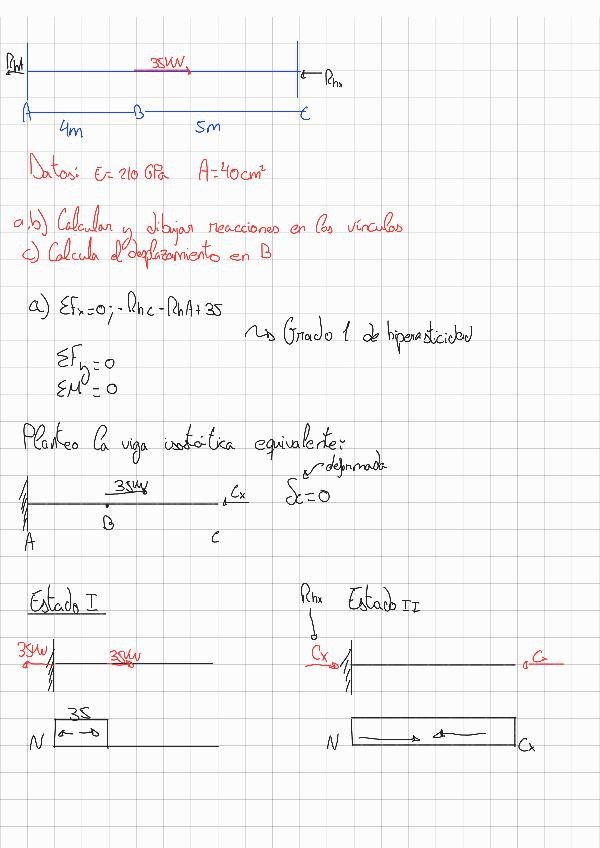 RhA 35kN Rhx
A B C
4m 5m
Datos: E=210 GPa A=40cm²
a,b) Calcular y dibujar reacciones en los vínculos
c) Calcula el desplazamiento en B
a) ΣFx=0; -Rhc-RhA+35
↝ Grado 1 de hiperasticidad
ΣFy=0
ΣM=0
Planteo la viga isostática equivalente:
deformada
35kN Cx δc=0
A B C
Estado I Rhx Estado II
35kN 35kN Cx Cx
35
N N Cx